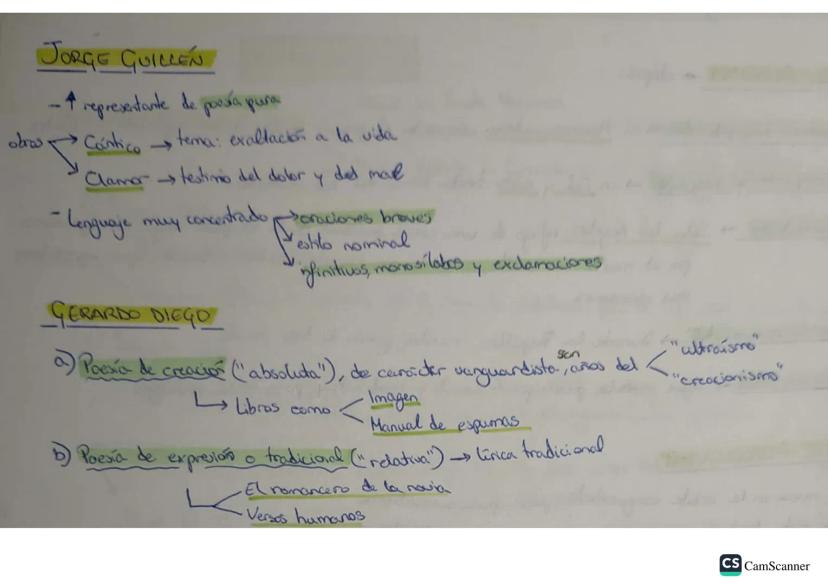 JORGE GUILLÉN
- ↑ representante de poesía pura
obras → Cántico → tema: exaltación a la vida
→ Clamor → testimio del dolor y del mal
- Lenguaje muy concentrado → oraciones breves
→ estilo nominal
→ infinitivos, monosílabos y exclamaciones
GERARDO DIEGO
a) Poesía de creación ("absoluta"), de carácter vanguardista, son años del "ultraísmo"
"creacionismo"
Libros como Imagen
Manual de espumas
b) Poesía de expresión o tradicional ("relativa") → lírica tradicional
El romancero de la novia
Versos humanos
CS CamScanner